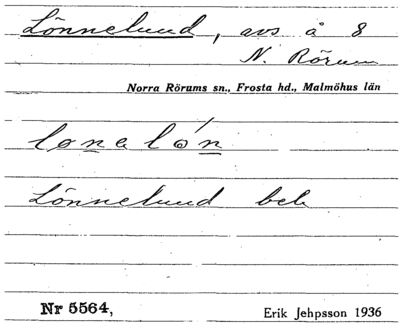 Lönnelund, avs å 8
N. Rörum
Norra Rörums sn., Frosta hd., Malmöhus län
lønaløn
Lönnelund beb
Nr 5564,
Erik Jehpsson 1936